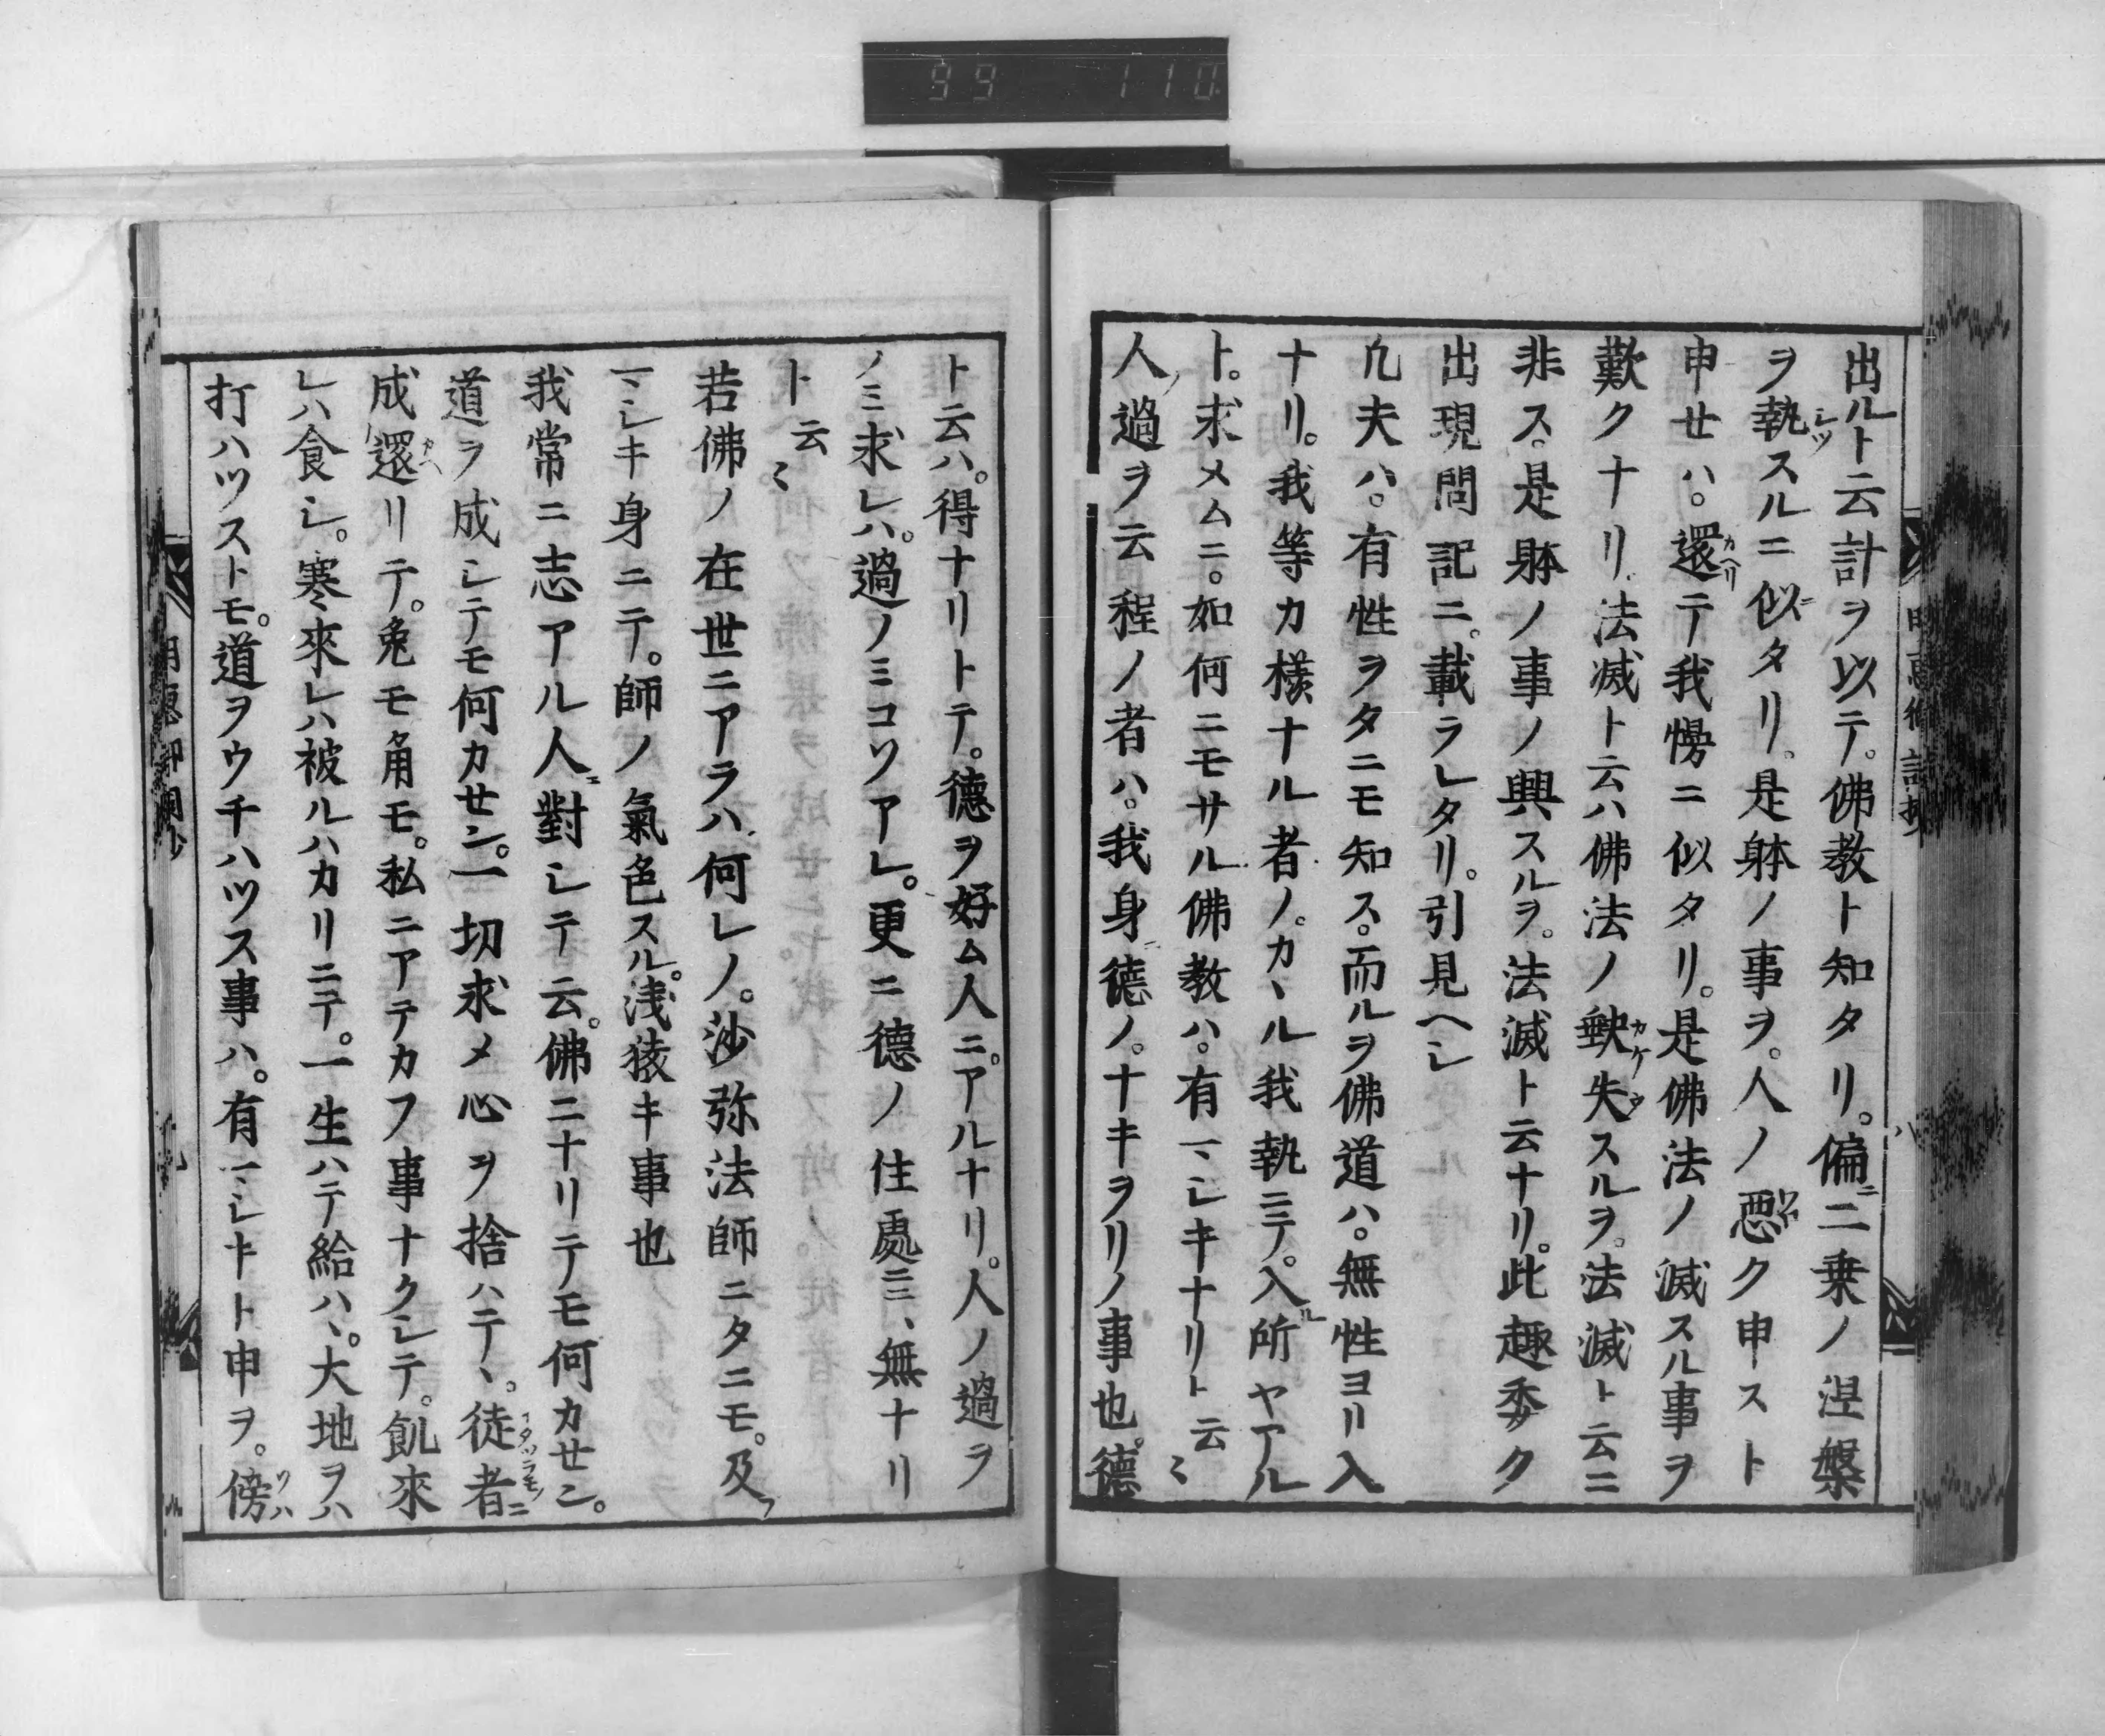 99 110
出ルト云計ヲ以テ。佛教ト知タリ。偏ニ二乗ノ涅槃
ヲ執スルニ似タリ。是躰ノ事ヲ。人ノ悪ク申スト
申せハ。還テ我慢ニ似タリ。是佛法ノ滅スル事ヲ
歎クナリ。法滅ト云ハ佛法ノ缺失スルヲ。法滅ト云ニ
非ス。是躰ノ事ノ興スルヲ。法滅ト云ナリ。此趣委ク
出現問記ニ。載ラレタリ。引見ヘシ
凡夫ハ。有性ヲタニモ知ス。而ルヲ佛道ハ。無性ヨリ入
ナリ。我等カ様ナル者ノ。カヽル我執ニテ。入所ヤアル
ト。求メムニ。如何ニモサル佛教ハ。有マシキナリト云〻
人ノ過ヲ云程ノ者ハ。我身ニ德ノ。ナキヲリノ事也。德
ト云ハ。得ナリトテ。德ヲ好ム人ニ。アルナリ。人ノ過ヲ
ノミ求レハ。過ノミコソアレ。更ニ德ノ住處ニハ、無ナリ
ト云〻
若佛ノ在世ニアラハ。何レノ。沙弥法師ニタニモ。及フ
マシキ身ニテ。師ノ氣色スル。浅猿キ事也
我常ニ志アル人ニ對シテ云。佛ニナリテモ何カせン。
道ヲ成シテモ何カせン。一切求メ心ヲ捨ハテヽ。徒者ニ
成還リテ。兎モ角モ。私ニアテカフ事ナクシテ。飢來
レハ食シ。寒來レハ被ルハカリニテ。一生ハテ給ハヽ。大地ヲハ
打ハツストモ。道ヲウチハツス事ハ。有マシキト申ヲ。傍